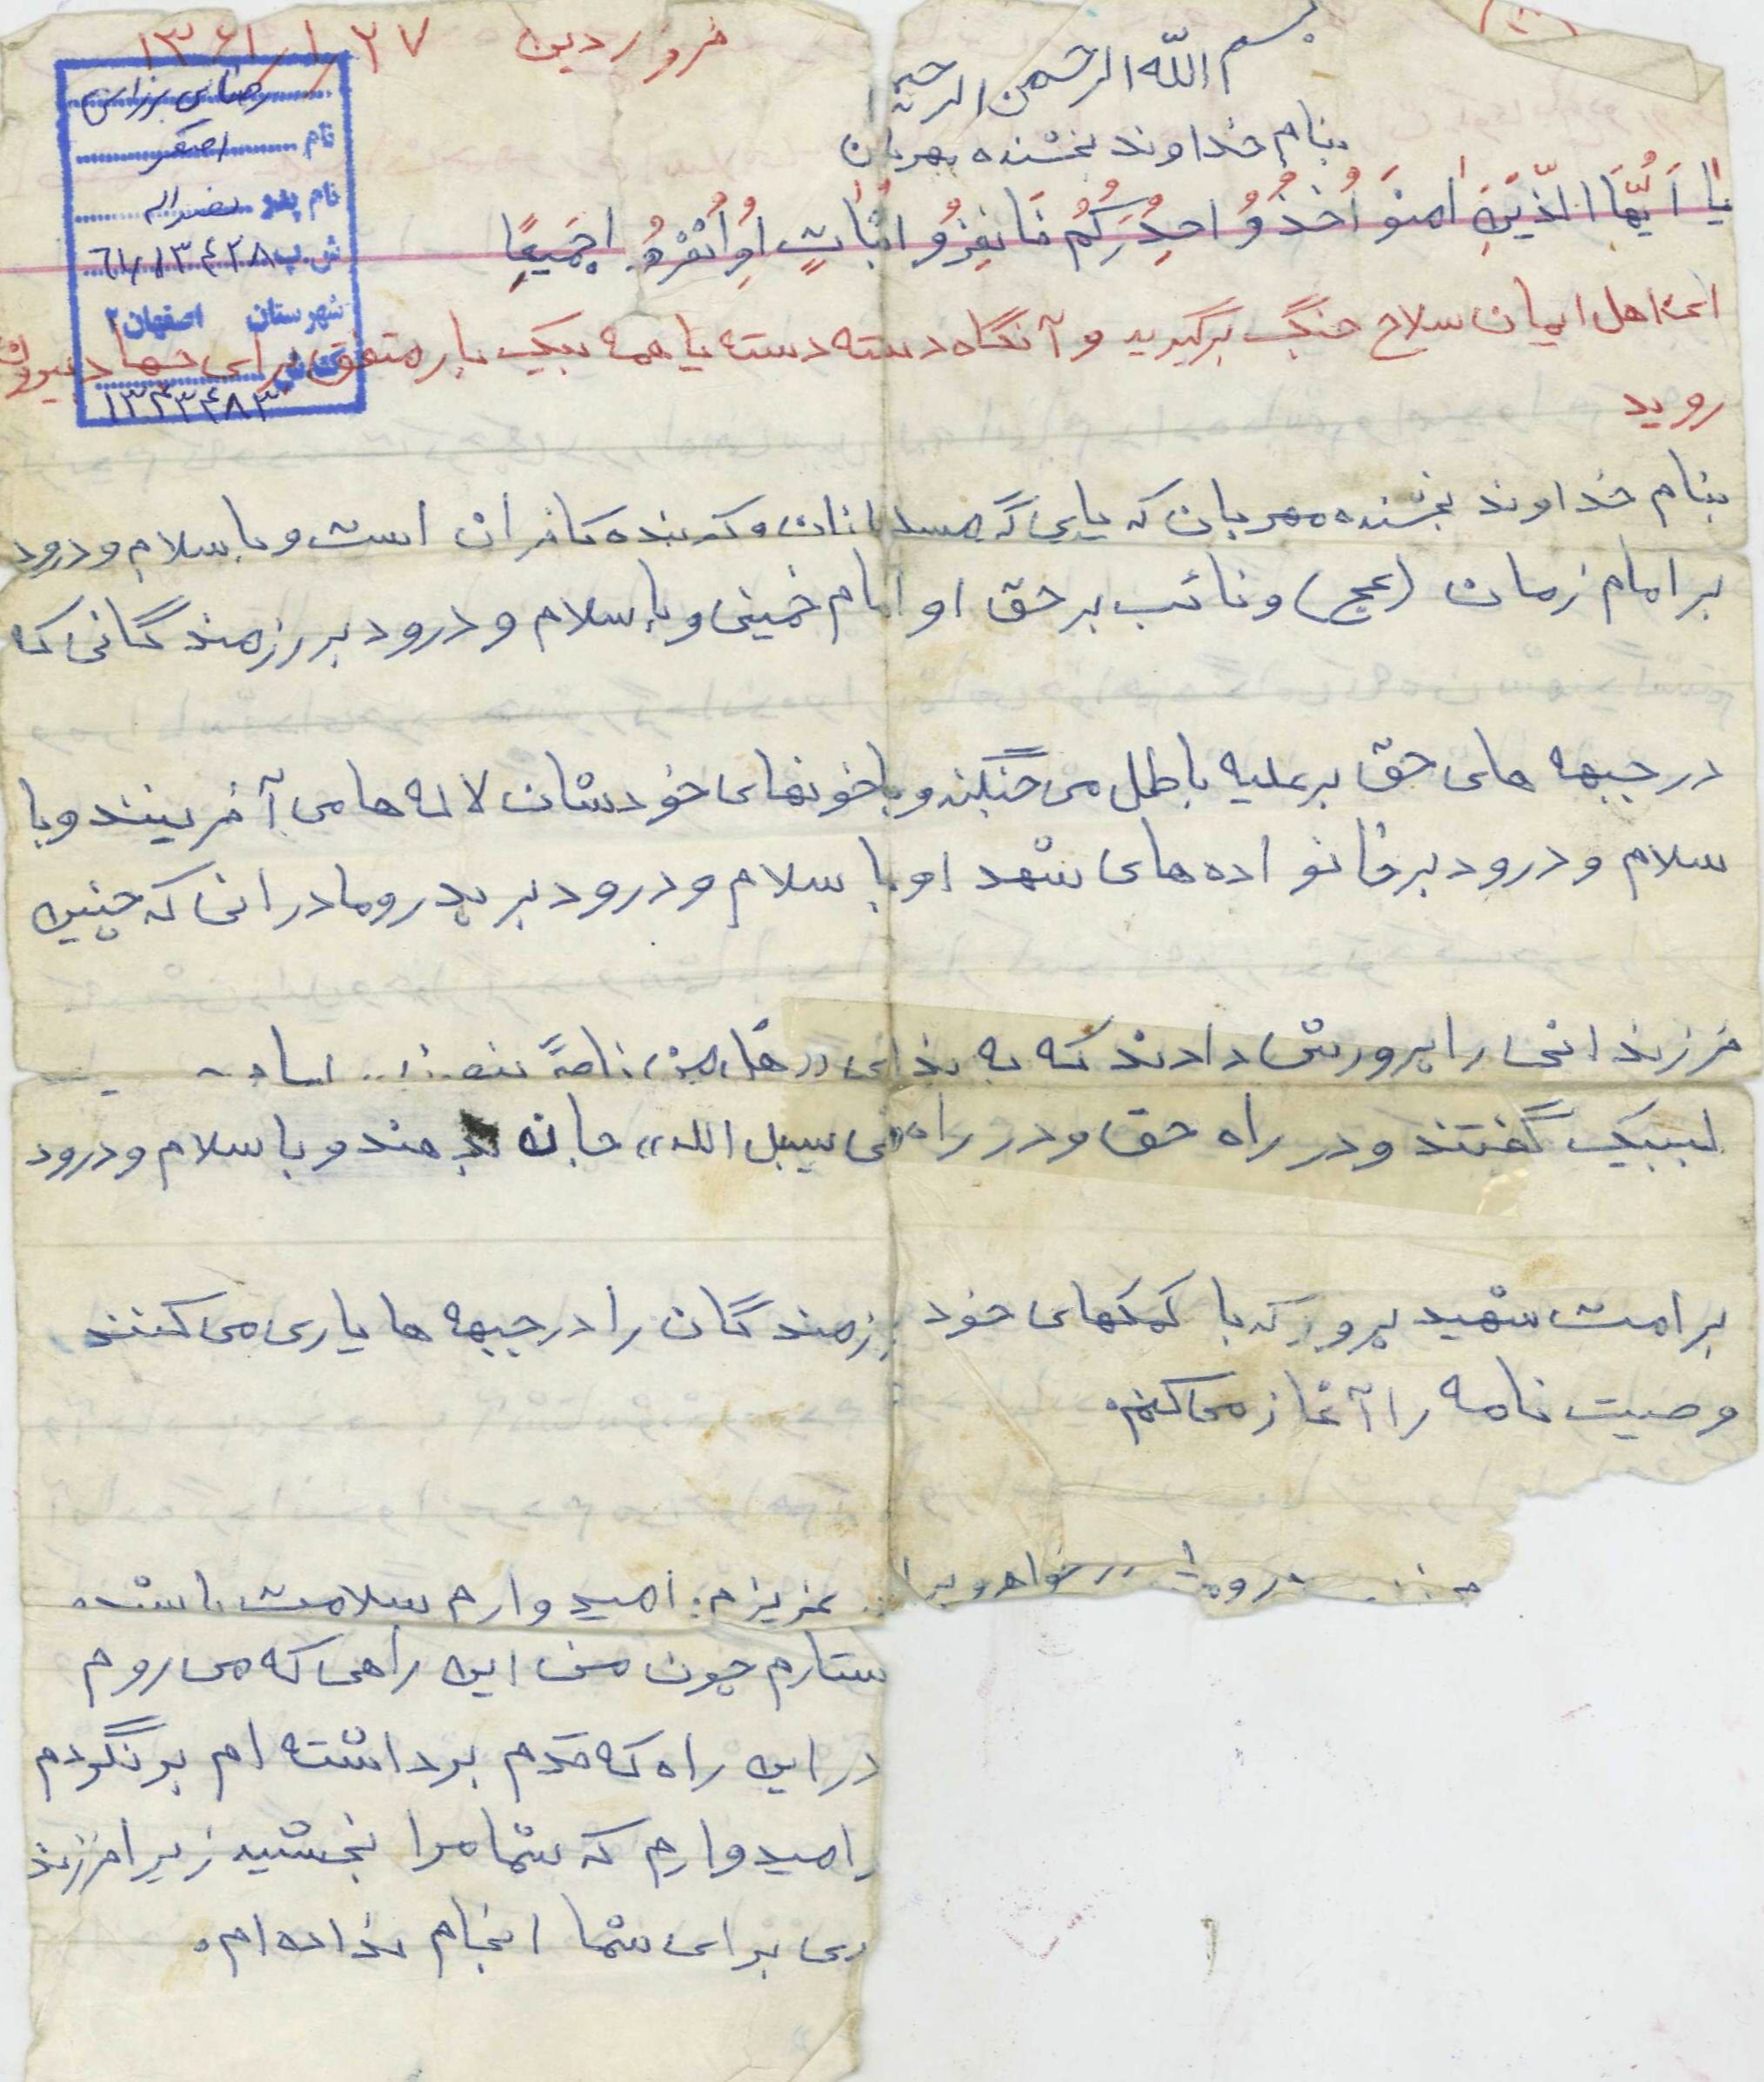 فروردین ۱۳۶۱/۱/۲۷
بسم الله الرحمن الرحیم
بنام خداوند بخشنده مهربان
نام اصغر
نام پدر
ش.پ ۶۱/۱۳۴۲۸
شهرستان اصفهان۲
۱۳۴۳۴۸۳
یا اَیُّهَا الَّذینَ امنوَ اُخذُوُ احِذُرَکُم فَانفِرُو اثُباتٍ اُوِانُفرُو اجَمیعًا
اهل ایمان سلاح جنگ برگیرید و آنگاه دسته دسته یا همه بیک بار متفق برای جهاد بیرون
روید
بنام خداوند بخشنده مهربان که یاری گر است و با سلام و درود
بر امام زمان (عج) و نائب بر حق او امام خمینی و با سلام و درود بر رزمندگانی که
در جبهه های حق بر علیه باطل می جنگند و با خونهای خودشان لاله ها می آفرینند و با
سلام و درود بر خانواده های شهدا و با سلام و درود بر پدر و مادرانی که چنین
فرزندانی را پرورش دادند که به ندای
لبیک گفتند و در راه حق و در راه «فی سبیل الله» و با سلام و درود
بر امت شهید پرور که با کمکهای خود رزمندگان را در جبهه ها یاری می کنند
وصیت نامه را آغاز می کنم.
عزیزم: امیدوارم سلامت باشند.
چون من این راهی که می روم
در این راه که قدم برداشته ام برنگردم
امیدوارم که شما مرا بخشید زیرا فرزند
برای شما انجام نداده ام.